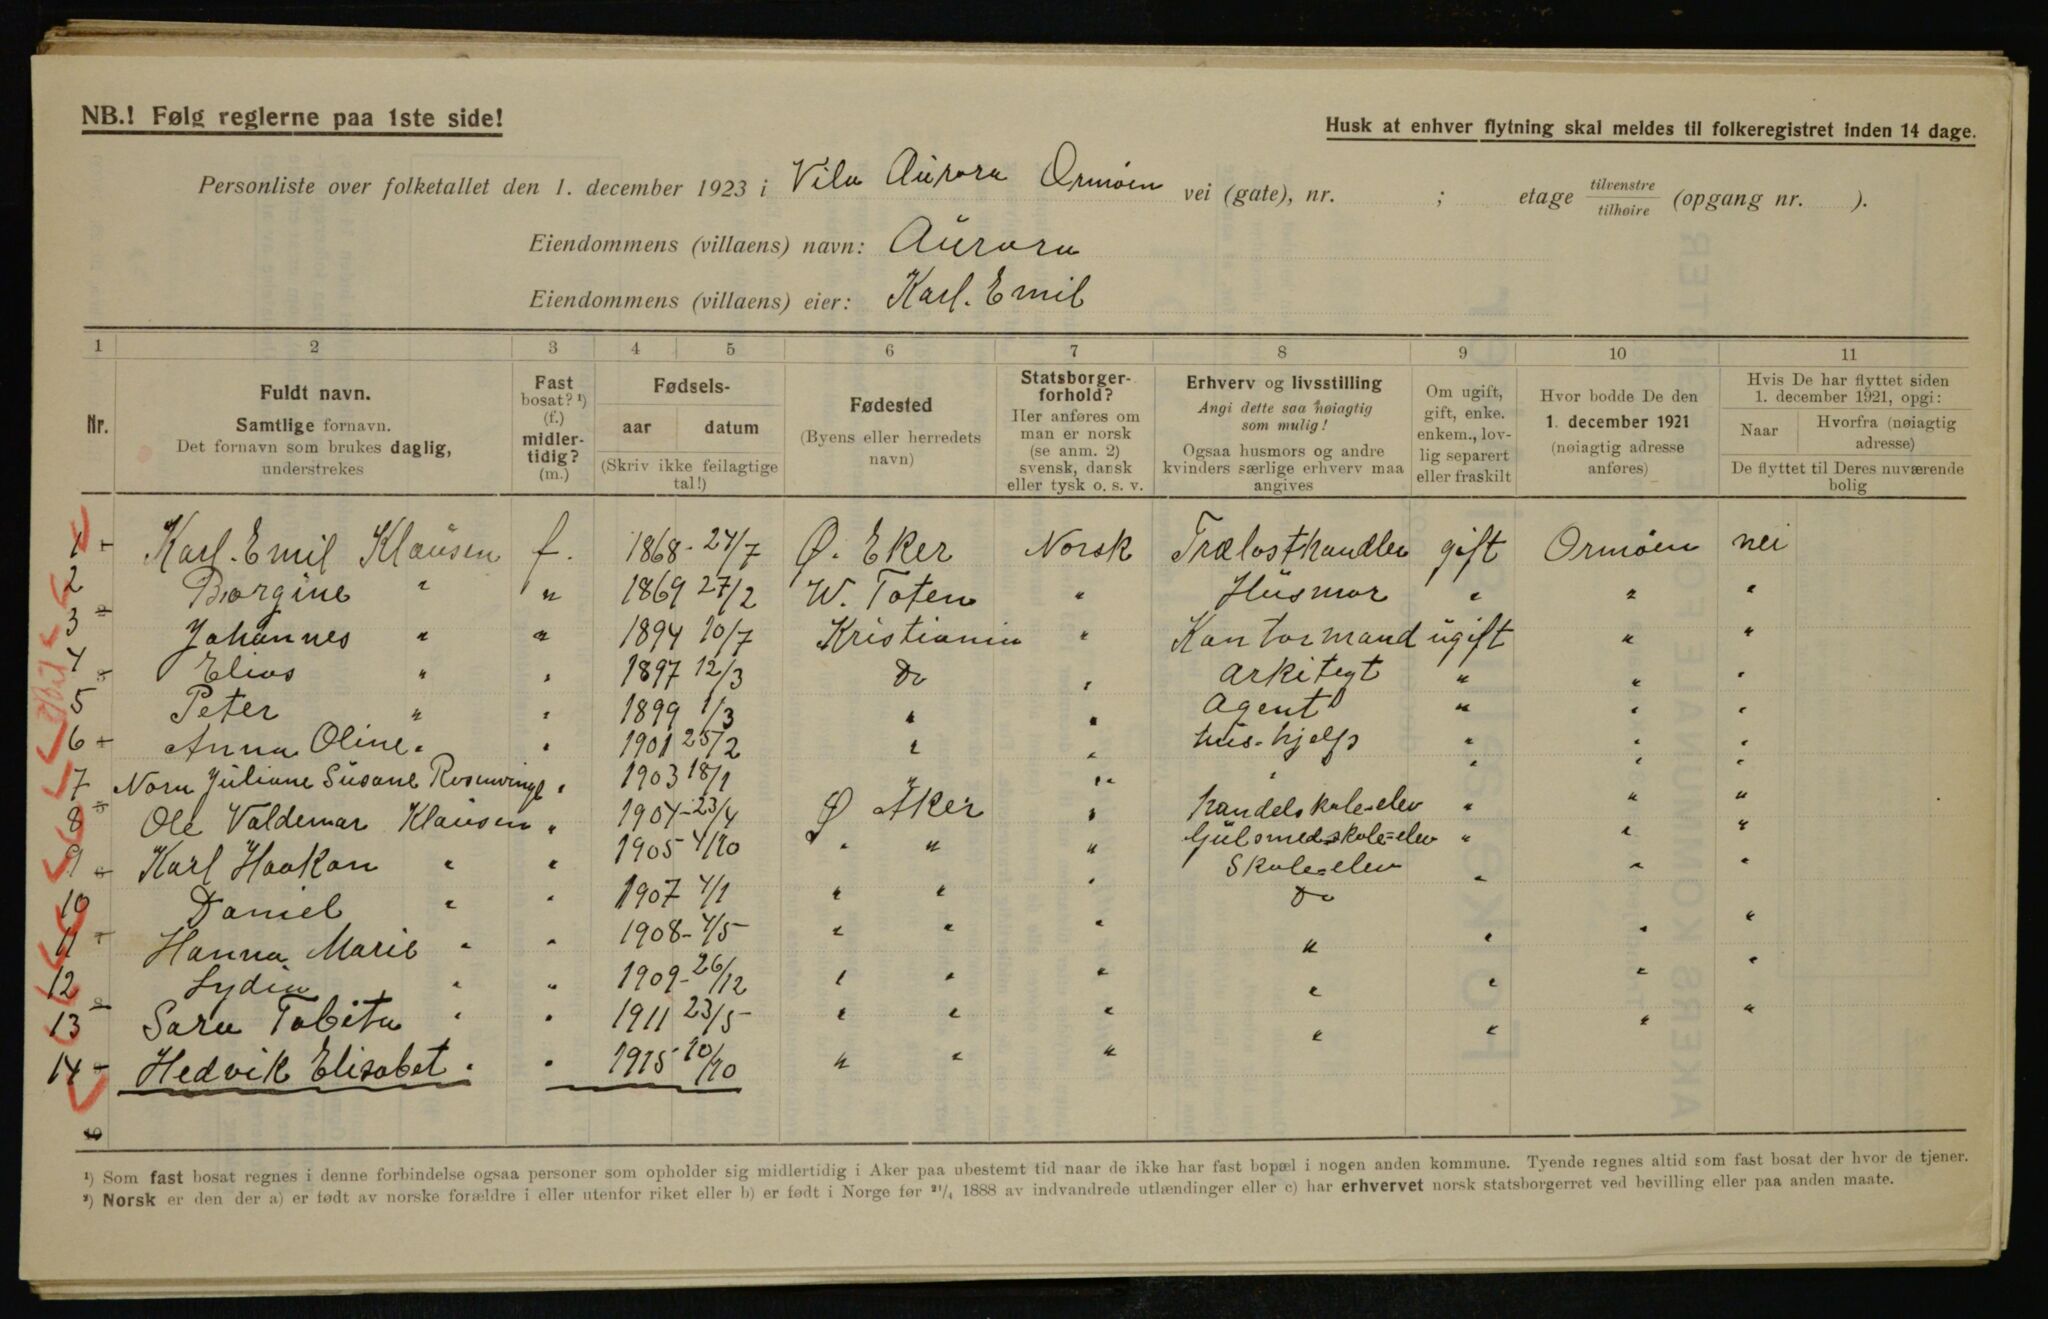 NB.! Følg reglerne paa 1ste side!
Husk at enhver flytning skal meldes til folkeregistret inden 14 dage.
Personliste over folketallet den 1. december 1923 i Vila Aurora Ormøen vei (gate), nr. ; etage tilvenstre tilhøire (opgang nr. ).
Eiendommens (villaens) navn: Aurora
Eiendommens (villaens) eier: Karl. Emil
1 2 3 4 5 6 7 8 9 10 11
Nr.
Fuldt navn.
Samtlige fornavn.
Det fornavn som brukes daglig,
understrekes
Fast
bosat? ¹)
(f.)
midler-
tidig?
(m.)
Fødsels-
aar datum
(Skriv ikke feilagtige
tal!)
Fødested
(Byens eller herredets
navn)
Statsborger-
forhold?
Her anføres om
man er norsk
(se anm. 2)
svensk, dansk
eller tysk o. s. v.
Erhverv og livsstilling
Angi dette saa nøiagtig
som mulig!
Ogsaa husmors og andre
kvinders særlige erhverv maa
angives
Om ugift,
gift, enke.
enkem., lov-
lig separert
eller fraskilt
Hvor bodde De den
1. december 1921
(nøiagtig adresse
anføres)
Hvis De har flyttet siden
1. december 1921, opgi:
Naar Hvorfra (nøiagtig
adresse)
De flyttet til Deres nuværende
bolig
1 Karl. Emil Klausen f. 1868 - 24/7 Ø. Eker Norsk Trælasthandler gift Ormøen nei
2 Borgine " " 1869 27/2 W. Toten " Husmor " " "
3 Johannes " " 1894 10/7 Kristiania " Kontormand ugift " "
4 Elias " " 1897 12/3 Do " Arkitegt " " "
5 Peter " " 1899 1/3 " " Agent " " "
6 Anna Oline " " 1901 25/2 " " hus-hjelp " " "
7 Nora Juliane Susane Rosenvinge " 1903 18/1 " " " " " "
8 Ole Valdemar Klausen " 1904 - 23/4 Ø Aker " handelskole=elev " " "
9 Karl Haakon " " 1905 4/10 " " " Gulsmedskole=elev " " "
10 Daniel " " 1907 4/1 " " " Skole=elev " " "
11 Hanna Marie " " 1908 - 4/5 " " " Do " " "
12 Lydia " " 1909 - 26/12 " " " " " " "
13 Sara Tabita " " 1911 23/5 " " " " " " "
14 Hedvik Elisabet " " 1915 10/10 " " " " " " "
¹) Som fast bosat regnes i denne forbindelse ogsaa personer som opholder sig midlertidig i Aker paa ubestemt tid naar de ikke har fast bopæl i nogen anden kommune. Tyende regnes altid som fast bosat der hvor de tjener.
²) Norsk er den der a) er født av norske forældre i eller utenfor riket eller b) er født i Norge før ²¹/₄ 1888 av indvandrede utlændinger eller c) har erhvervet norsk statsborgerret ved bevilling eller paa anden maate.